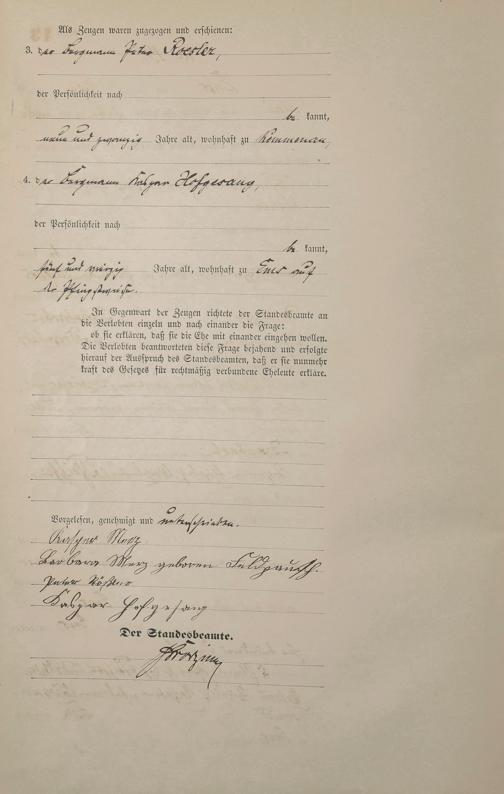 Als Zeugen waren zugezogen und erschienen:
3. der Bergmann Peter Roesler,
der Persönlichkeit nach
be kannt,
neun und zwanzig Jahre alt, wohnhaft zu Kemmenau,
4. der Bergmann Kaspar Hofgesang,
der Persönlichkeit nach
be kannt,
fünf und vierzig Jahre alt, wohnhaft zu Ems auf
der Pfingstweide.
In Gegenwart der Zeugen richtete der Standesbeamte an
die Verlobten einzeln und nach einander die Frage:
ob sie erklären, daß sie die Ehe mit einander eingehen wollen.
Die Verlobten beantworteten diese Frage bejahend und erfolgte
hierauf der Ausspruch des Standesbeamten, daß er sie nunmehr
kraft des Gesetzes für rechtmäßig verbundene Eheleute erkläre.
Vorgelesen, genehmigt und unterschrieben.
Kaspar Merz
Barbara Merz geboren Feldpausch.
Peter
Kaspar Hofgesang
Der Standesbeamte.